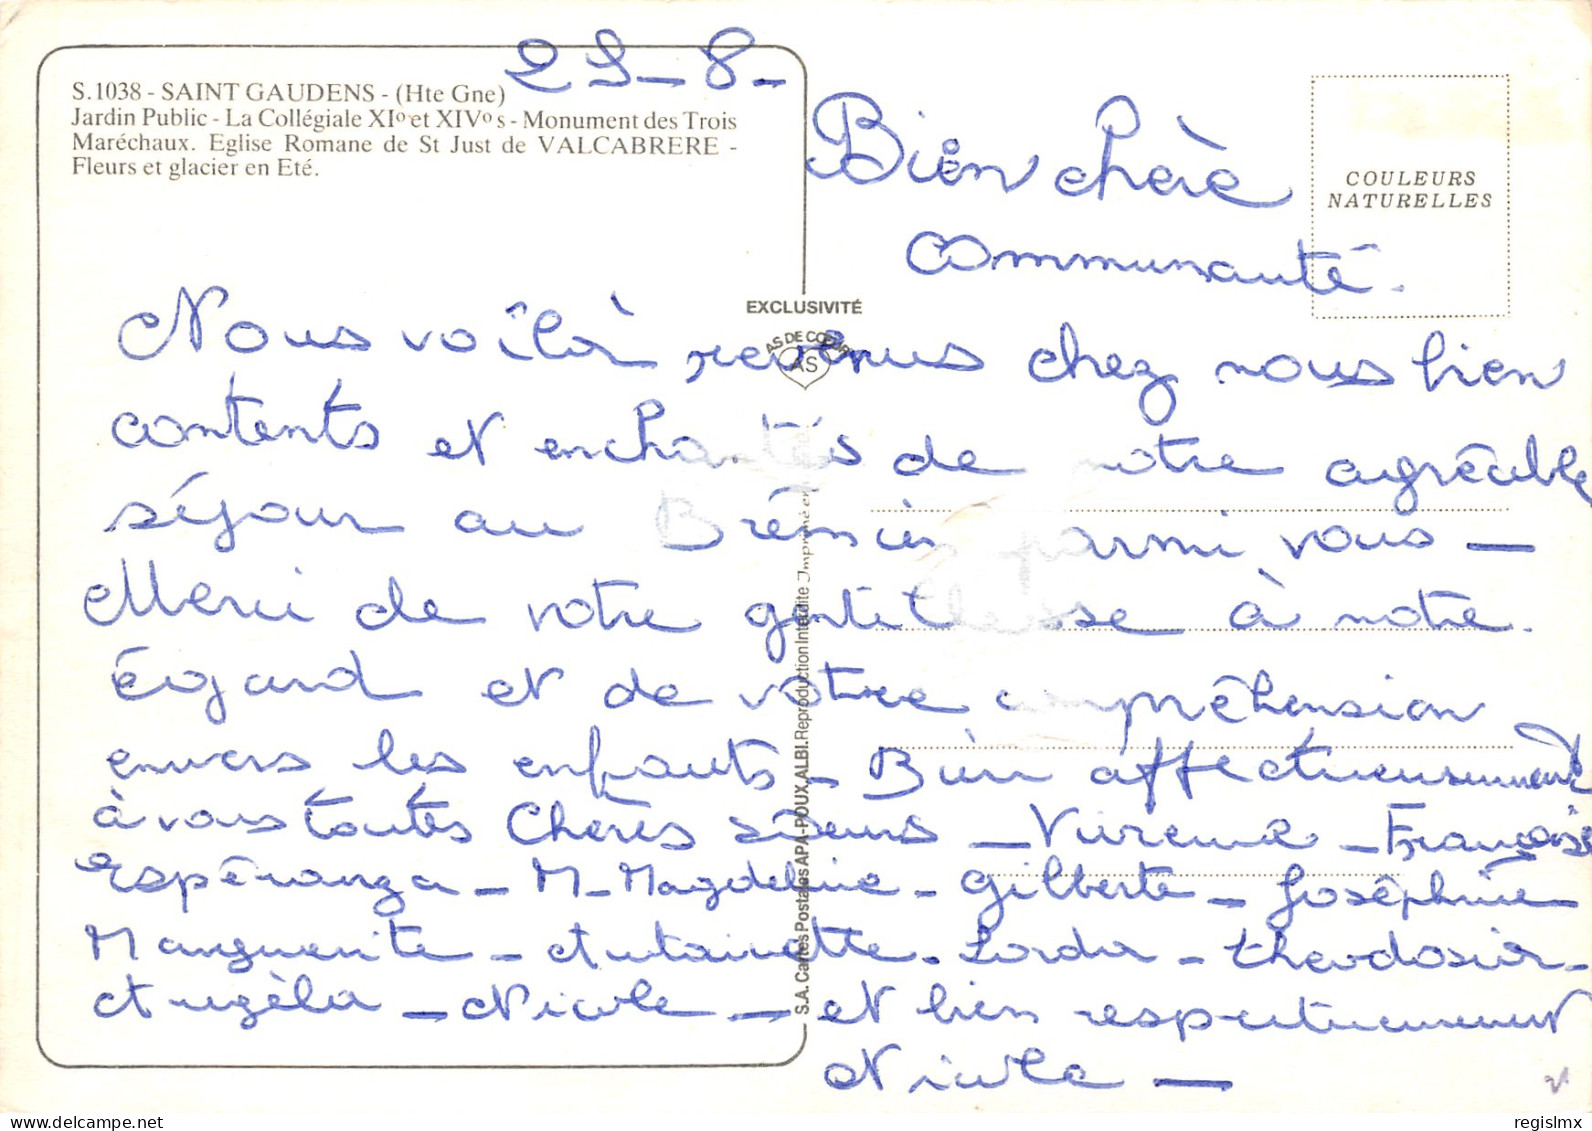 25-8-
S.1038 - SAINT GAUDENS - (Hte Gne)
Jardin Public - La Collégiale XIº et XIVº s - Monument des Trois
Maréchaux. Eglise Romane de St Just de VALCABRERE -
Fleurs et glacier en Eté.
COULEURS
NATURELLES
Bien chère
communauté.
EXCLUSIVITÉ
AS DE CŒUR
AS
Nous voilà revenus chez nous bien
contents et enchantés de notre agréable
séjour au parmi vous -
Merci de votre gentillesse à notre
égard et de votre compréhension
envers les enfants - Bien affectueusement
à vous toutes Chères sœurs - - Françoise
Espéranza - M-Magdeleine - Gilberte - Joséphine
Marguerite - Antoinette - - Théodosia -
Angèla - Nicole - et bien respectueusement
Nicole -
S.A. Cartes Postales APA-POUX, ALBI. Reproduction Interdite Imprimé en
regislmx